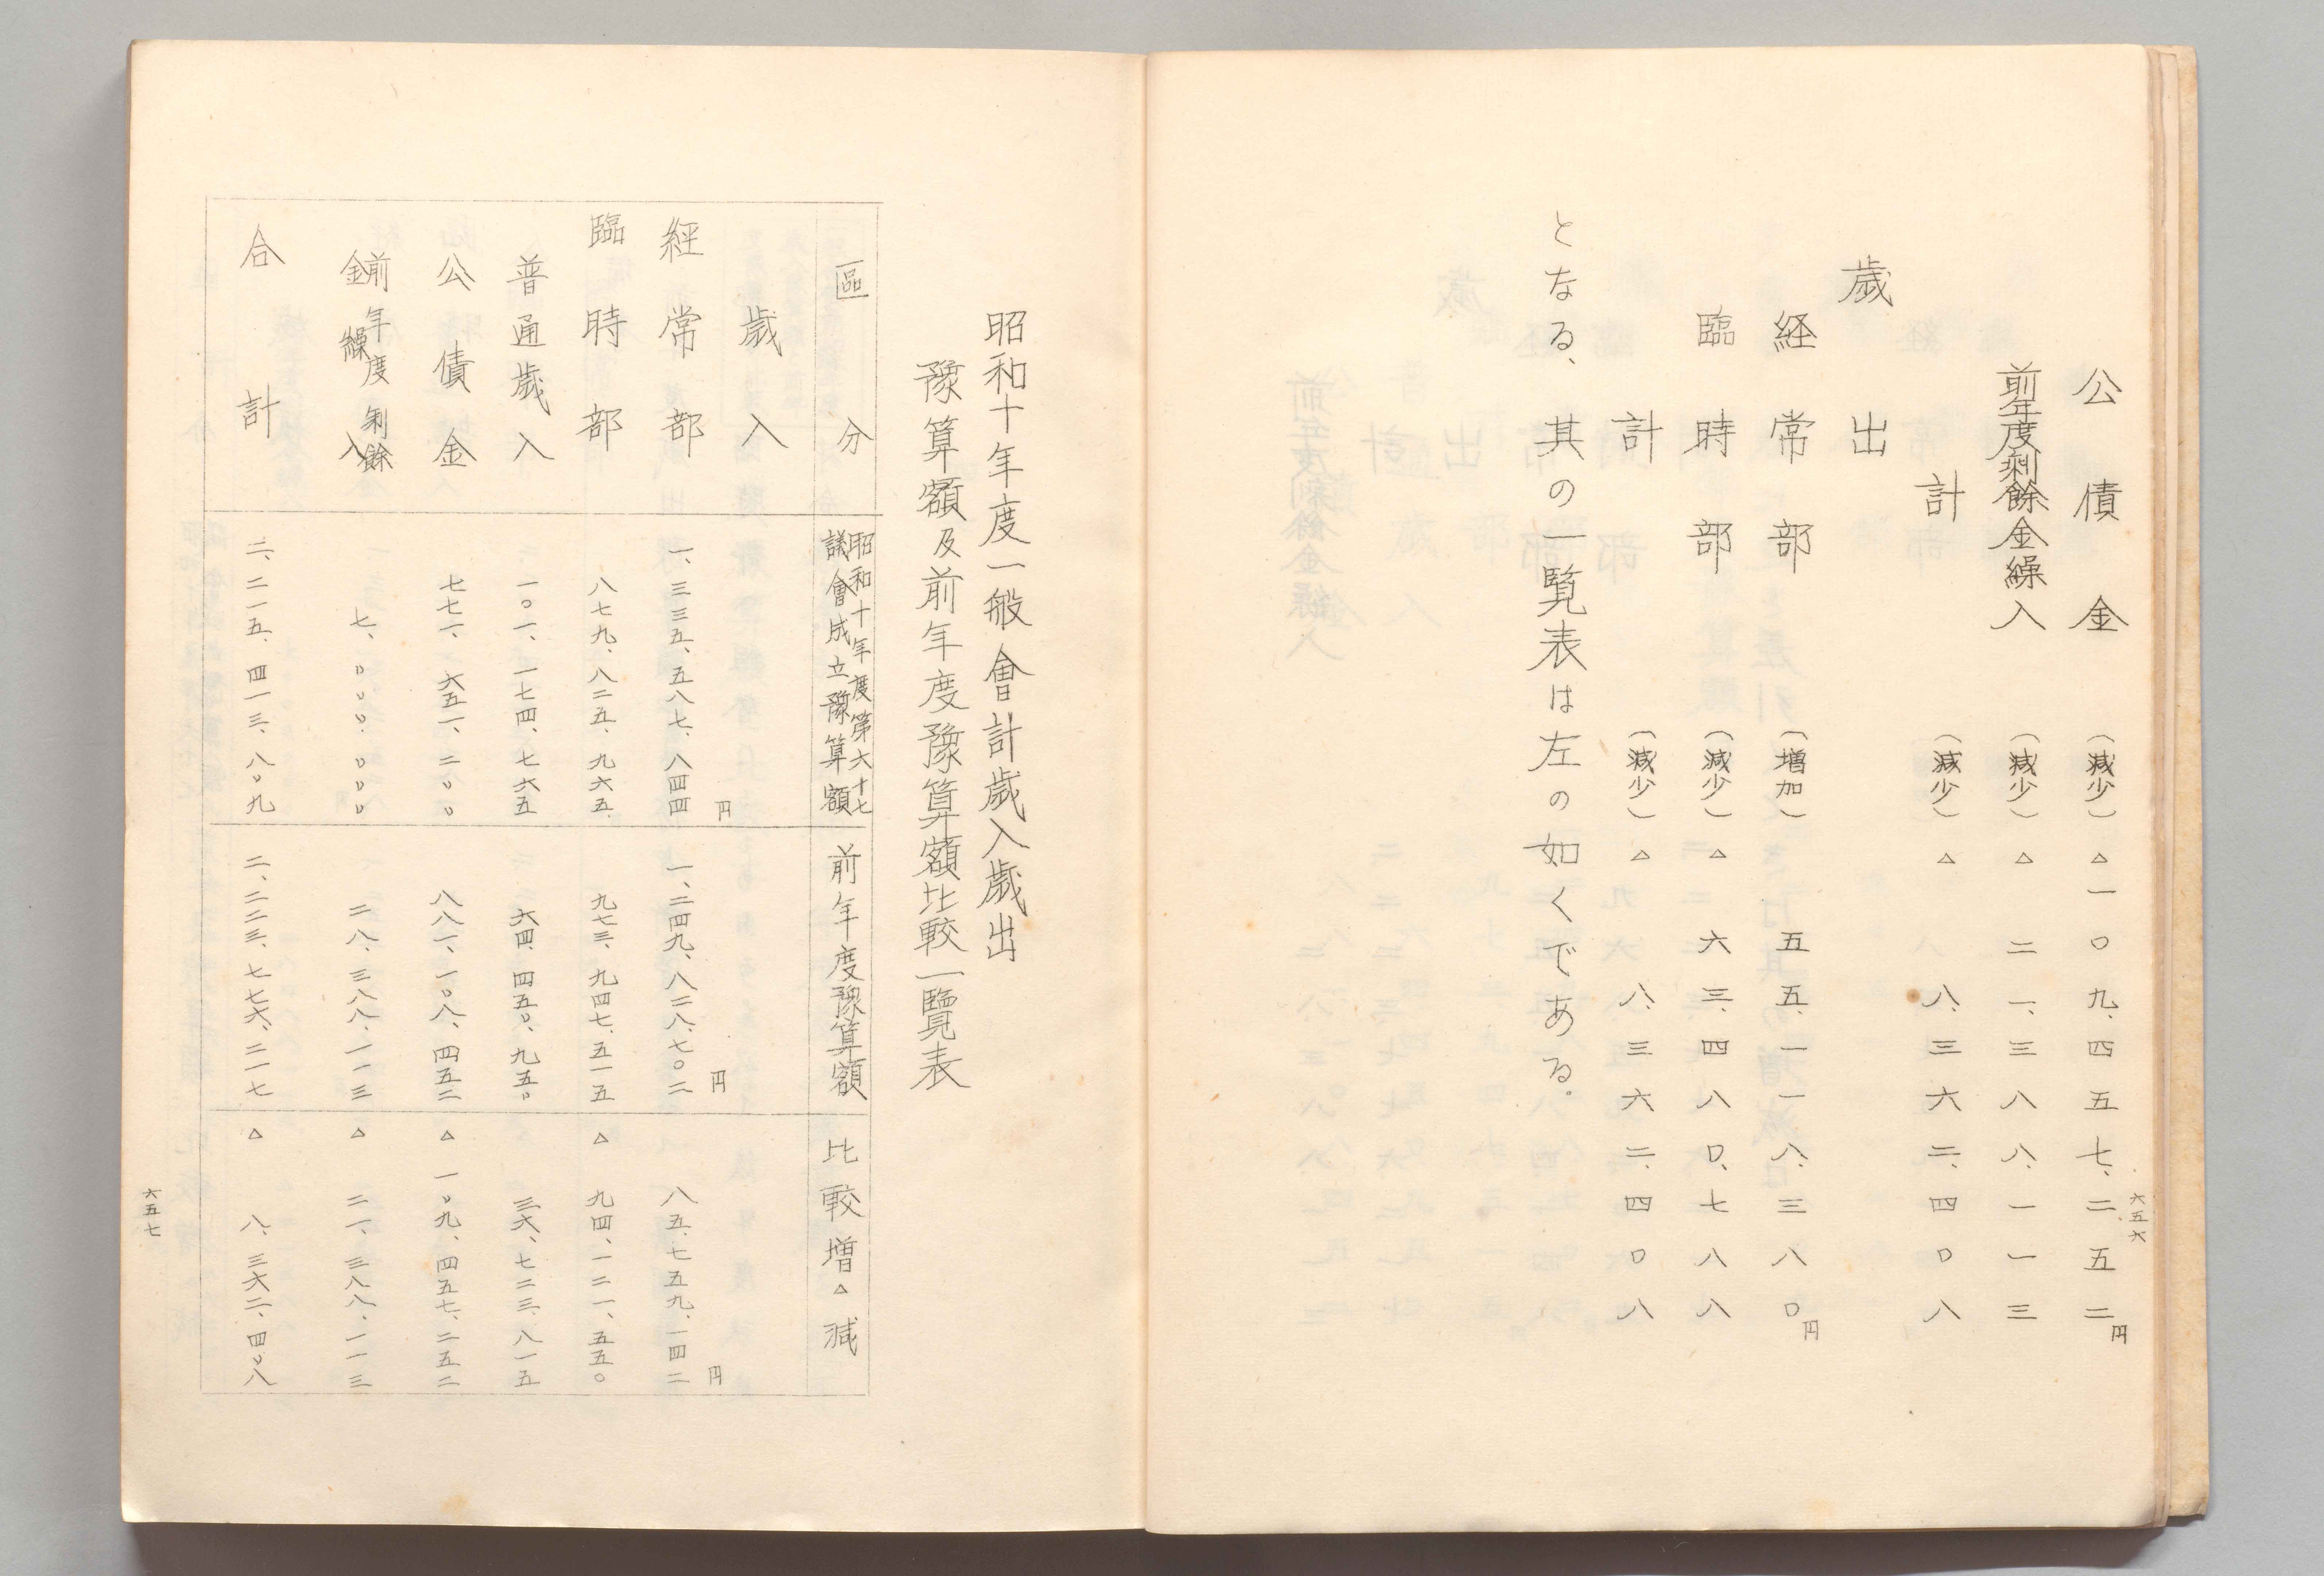 六五六
公債金 （減少）△一〇九、四五七、二五二円
前年度剰餘金繰入 （減少）△二一、三八八、一一三
計 （減少）△八、三六二、四〇八
歳出
経常部 （増加）五五、一一八、三八〇円
臨時部 （減少）△六三、四八〇、七八八
計 （減少）△八、三六二、四〇八
となる、其の一覧表は左の如くである。
昭和十年度一般會計歳入歳出
豫算額及前年度豫算額比較一覽表
區分 昭和十年度第六十七議會成立豫算額 前年度豫算額 比較増△減
歳入 円 円 円
経常部 一、三三五、五八七、八四四 一、二四九、八二八、七〇二 八五、七五九、一四二
臨時部 八七九、八二五、九六五 九七三、九四七、五一五 △九四、一二一、五五〇
普通歳入 一〇一、一七四、七六五 六四、四五〇、九五〇 三六、七二三、八一五
公債金 七七一、六五一、二〇〇 八八一、一〇八、四五二 △一〇九、四五七、二五二
前年度剰餘金繰入 七、〇〇〇、〇〇〇 二八、三八八、一一三 △二一、三八八、一一三
合計 二、二一五、四一三、八〇九 二、二二三、七七六、二一七 △八、三六二、四〇八
六五七